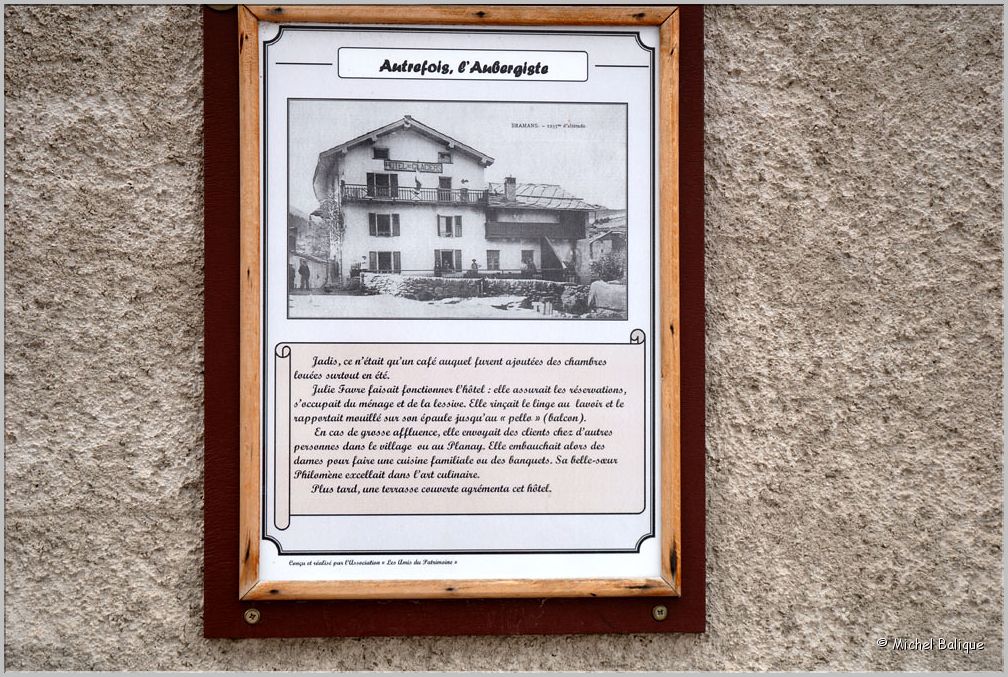 Autrefois, l'Aubergiste
BRAMANS. - 1233m d'altitude
HOTEL DES GLACIERS
Jadis, ce n'était qu'un café auquel furent ajoutées des chambres
louées surtout en été.
Julie Favre faisait fonctionner l'hôtel : elle assurait les réservations,
s'occupait du ménage et de la lessive. Elle rinçait le linge au lavoir et le
rapportait mouillé sur son épaule jusqu'au « pello » (balcon).
En cas de grosse affluence, elle envoyait des clients chez d'autres
personnes dans le village ou au Planay. Elle embauchait alors des
dames pour faire une cuisine familiale ou des banquets. Sa belle-sœur
Philomène excellait dans l'art culinaire.
Plus tard, une terrasse couverte agrémenta cet hôtel.
Conçu et réalisé par l'Association « Les Amis du Patrimoine »
© Michel Balique